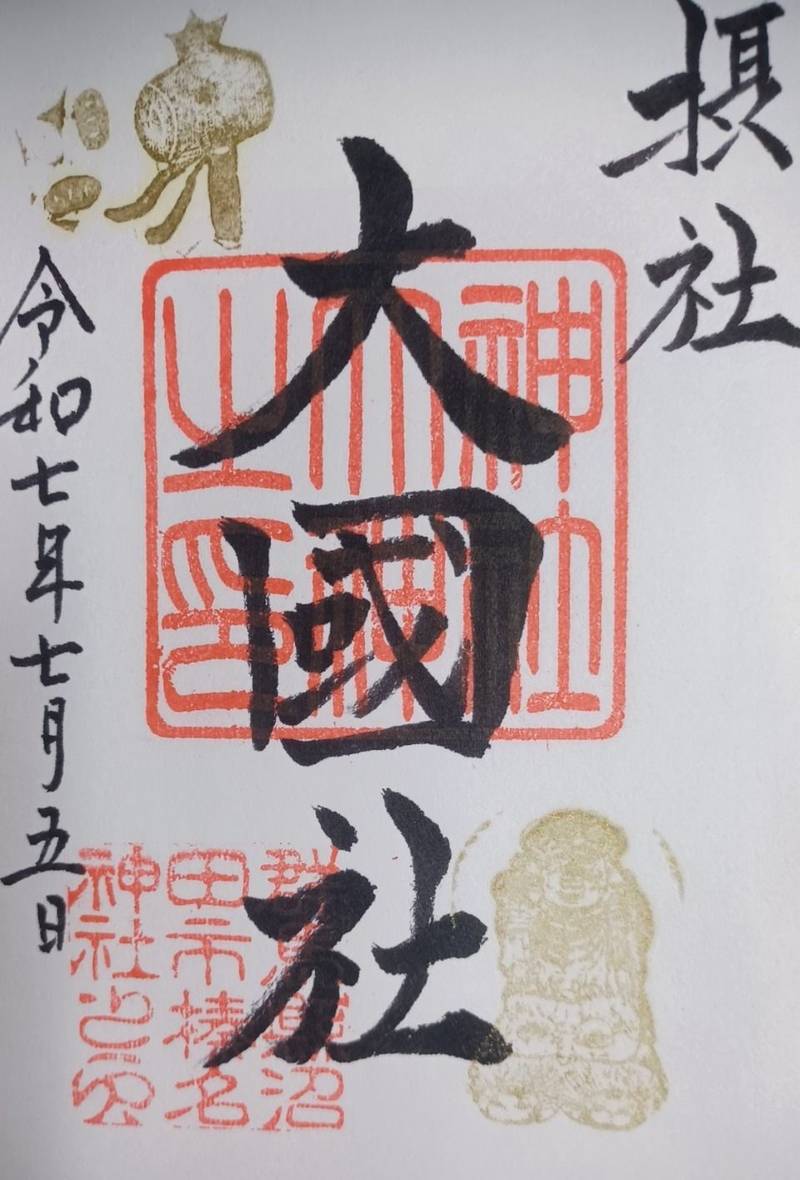 摂社
大國社
令和七年七月五日
神社
之印
群馬縣沼
田市榛名
神社之